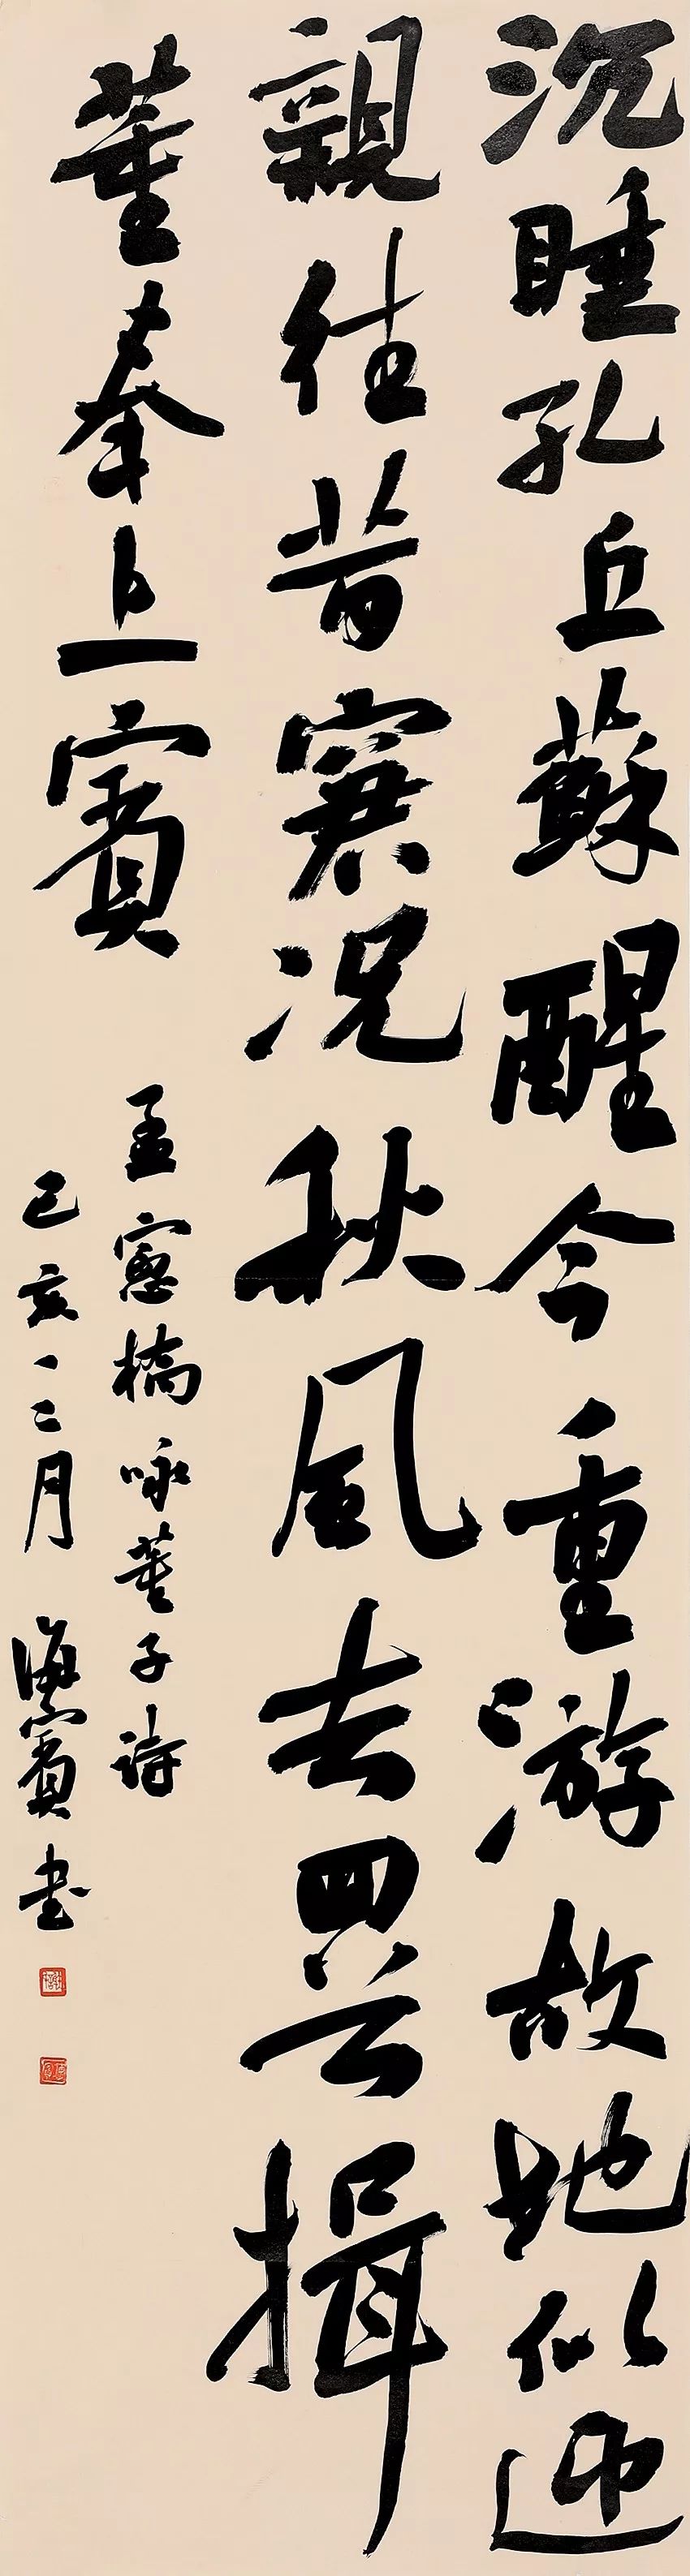 沉睡孔丘蘇醒今重游故地似迎
親往昔窘况秋風去四揖
董奉上賓
孟憲橋咏董子詩
己亥一二月 海賓書